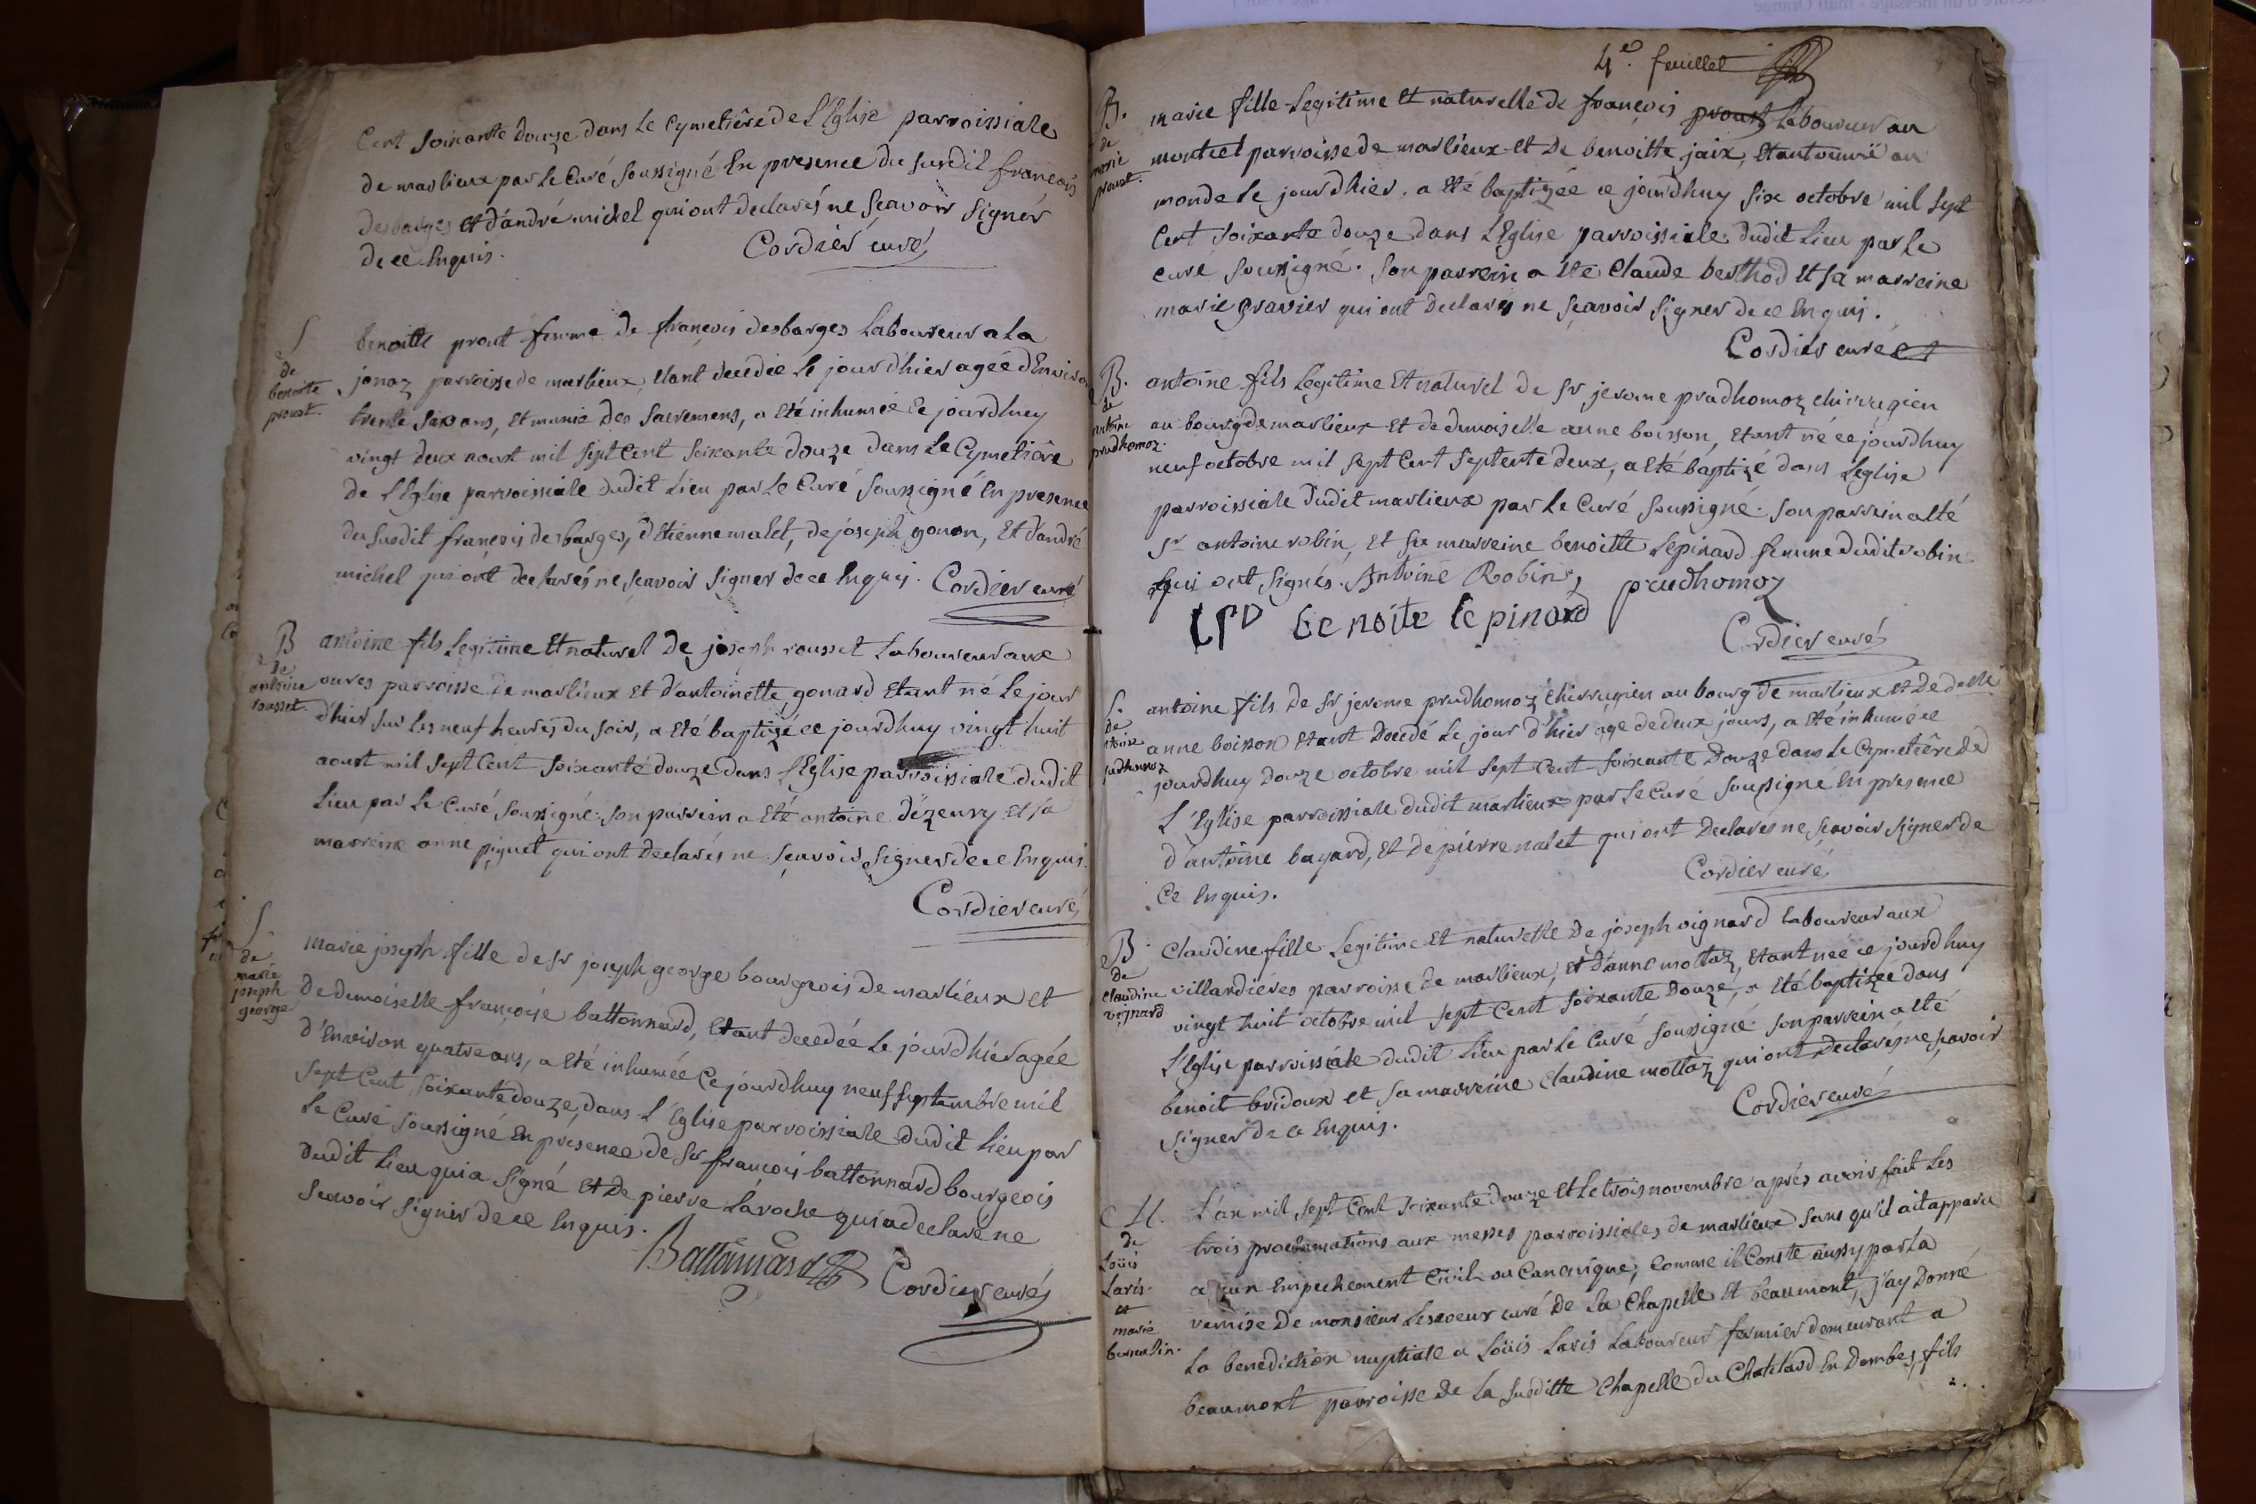 Cent soixante douze dans le cymetiêre de l'Eglise parroissiale
de marlieux par le Curé soussigné En presence du susdit francois
desbarges et d'andré michel qui ont declarés ne sçavoir signer
de ce Enquis.
Cordier curé
S
de
benoite
proust.
benoitte prout femme de francois desbarges Laboureur a La
jonaz parroisse de marlieux, étant decedée le jour d'hier agée d'Environ
trente six ans, et munie des sacremens, a eté inhumée ce jourdhuy
vingt deux aoust mil sept cent soixante douze dans Le Cymetiêre
de l'Eglise parroissiale dudit Lieu par Le Curé soussigné En presence
du susdit francois desbarges, d'etienne malet, de joseph gonon, et d'andré
michel qui ont declarés ne sçavoir signer de ce Enquis. Cordier curé
B
de
antoine
rousset.
antoine fils Legitime et naturel de joseph rousset Laboureur aux
oures parroisse de marlieux et d'antoinette gonard Etant né Le jour
d'hier sur les neuf heures du soir, a eté baptizé ce jourdhuy vingt huit
aoust mil sept cent soixante douze dans l'Eglise parroissiale dudit
Lieu par Le Curé soussigné: son parrein a eté antoine dézeury et sa
marreine anne piquet qui ont declarés ne sçavoir signer de ce Enquis.
Cordier curé
S.
de
marie
joseph
george
marie joseph fille de sr joseph george bourgeois de marlieux et
de demoiselle françoise battonnard, Etant decedée Le jourd'hier agée
d'Environ quatre ans, a eté inhumée ce jourdhuy neuf septembre mil
sept cent soixante douze, dans l'Eglise parroissiale dudit Lieu par
Le Curé soussigné En presence de sr francois battonnard bourgeois
dudit Lieu qui a signé et de pierre Laroche qui a declaré ne
sçavoir signer de ce Enquis.
Battonnard Cordier curé
4e. feuillet
B.
de
marie
proust.
marie fille Legitime et naturelle de francois proust Laboureur au
montcel parroisse de marlieux et de benoitte jaix, Etant venuë au
monde Le jour d'hier, a eté baptizée ce jourdhuy six octobre mil sept
cent soixante douze dans l'Eglise parroissiale dudit Lieu par Le
curé soussigné. son parrein a eté Claude berthod et sa marreine
marie gravier qui ont declarés ne sçavoir signer de ce Enquis.
Cordier curé
B.
de
antoine
prudhomoz.
antoine fils Legitime et naturel de sr jerome prudhomoz chirurgien
au bourg de marlieux et de demoiselle anne boisson, Etant né ce jourdhuy
neuf octobre mil sept cent septente deux, a eté baptizé dans l'eglise
parroissiale dudit marlieux par Le Curé soussigné. son parrein a eté
sr antoine robin, et sa marreine benoitte Lépinard femme dudit robin
qui ont signés. Antoine Robin, prudhomoz
benoite le pinard
Cordier curé
S.
de
antoine
prudhomoz
antoine fils de sr jerome prudhomoz chirurgien au bourg de marlieux et de delle
anne boisson Etant decedé Le jour d'hier agé de deux jours, a eté inhumé ce
jourdhuy douze octobre mil sept cent soixante douze dans Le cymetiêre de
L'Eglise parroissiale dudit marlieux par Le curé soussigné En presence
d'antoine bayard, et de pierre nalet qui ont declarés ne sçavoir signer de
ce Enquis.
Cordier curé
B.
de
claudine
vignard
Claudine fille Legitime et naturelle de joseph vignard Laboureur aux
villardiéres parroisse de marlieux, et d'anne mottaz, Etant née ce jourdhuy
vingt huit octobre mil sept cent soixante douze, a eté baptizée dans
l'Eglise parroissiale dudit Lieu par Le Curé soussigné son parrein a eté
benoit bridoux et sa marreine Claudine mottaz qui ont declarés ne sçavoir
signer de ce Enquis.
Cordier curé
M.
de
Loüis
Laris
et
marie
L'an mil sept Cent soixante douze et Le trois novembre aprés avoir fait Les
trois proclamations aux messes parroissiales de marlieux sans qu'il ait apparu
aucun Empechement Civil ou Canonique, comme il conste aussy par La
remise de monsieur Lescoeur curé de La Chapelle et beaumont, j'ay donné
La benediction nuptiale a Loüis Laris Laboureur fermier demeurant a
beaumont parroisse de La suditte Chapelle du Chatelard En Dombes, fils